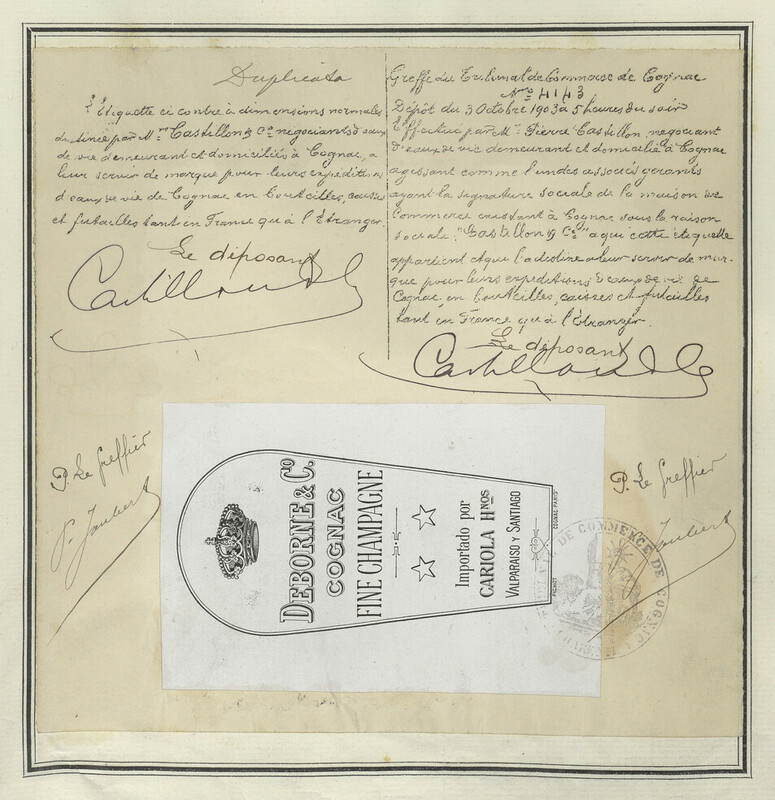 Duplicata
L'Etiquette ci contre à dimensions normales
destinée par M.rs Castillon & Co négociants d'eaux
de vie demeurant et domiciliés à Cognac, a
leur servir de marque pour leurs expéditions
d'eaux de vie de Cognac en bouteilles, caisses
et futailles tant en France qu'à l'Etranger.
Le déposant
Castillon & Co
Greffe du Tribunal de Commerce de Cognac
No 4143
Dépôt du 3 Octobre 1903 à 5 heures du soir
Effectué par M. Pierre Castillon, négociant
d'eaux de vie demeurant et domicilié à Cognac
agissant comme l'un des associés gérants
ayant la signature sociale de la maison de
Commerce existant à Cognac sous la raison
sociale "Castillon & Co" à qui cette étiquette
appartient et qui l'a destine a leur servir de mar-
que pour leurs expéditions d'eaux de vie de
Cognac en bouteilles, caisses et futailles
tant en France qu'à l'Etranger.
Le déposant
Castillon & Co
P. Le Greffier
P. Jaubert
DEBORNE & Co.
COGNAC
FINE CHAMPAGNE
Importado por
CARIOLA Hnos
VALPARAISO Y SANTIAGO
COGNAC-PARIS
P. Le Greffier
Jaubert
DE COMMERCE DE COGNAC